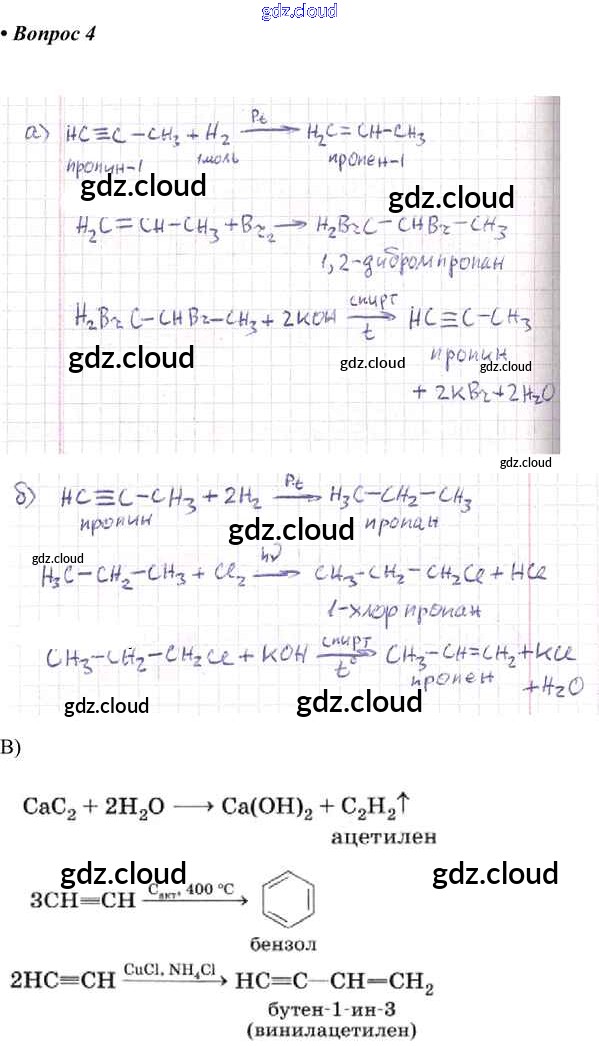 gdz.cloud
• Вопрос 4
а) HC≡C–CH₃ + H₂ —Pt→ H₂C=CH–CH₃
пропин-1 1моль пропен-1
gdz.cloud gdz.cloud
H₂C=CH–CH₃+Br₂ → H₂BrC–CHBr–CH₃
1,2-дибромпропан
H₂BrC–CHBr–CH₃+2KOH —спирт, t→ HC≡C–CH₃
gdz.cloud пропин gdz.cloud gdz.cloud
+ 2KBr+2H₂O
gdz.cloud
б) HC≡C–CH₃+2H₂ —Pt→ H₃C–CH₂–CH₃
пропин gdz.cloud пропан
gdz.cloud
H₃C–CH₂–CH₃ + Cl₂ —hν→ CH₃–CH₂–CH₂Cl + HCl
1-хлорпропан
CH₃–CH₂–CH₂Cl+KOH —спирт, t°→ CH₃–CH=CH₂+KCl
пропен +H₂O
gdz.cloud gdz.cloud
В)
CaC₂ + 2H₂O ⟶ Ca(OH)₂ + C₂H₂↑
ацетилен
gdz.cloud gdz.cloud
3CH≡CH —Cакт, 400 °C→
бензол
2HC≡CH —CuCl, NH₄Cl→ HC≡C—CH=CH₂
бутен-1-ин-3
(винилацетилен)
gdz.cloud